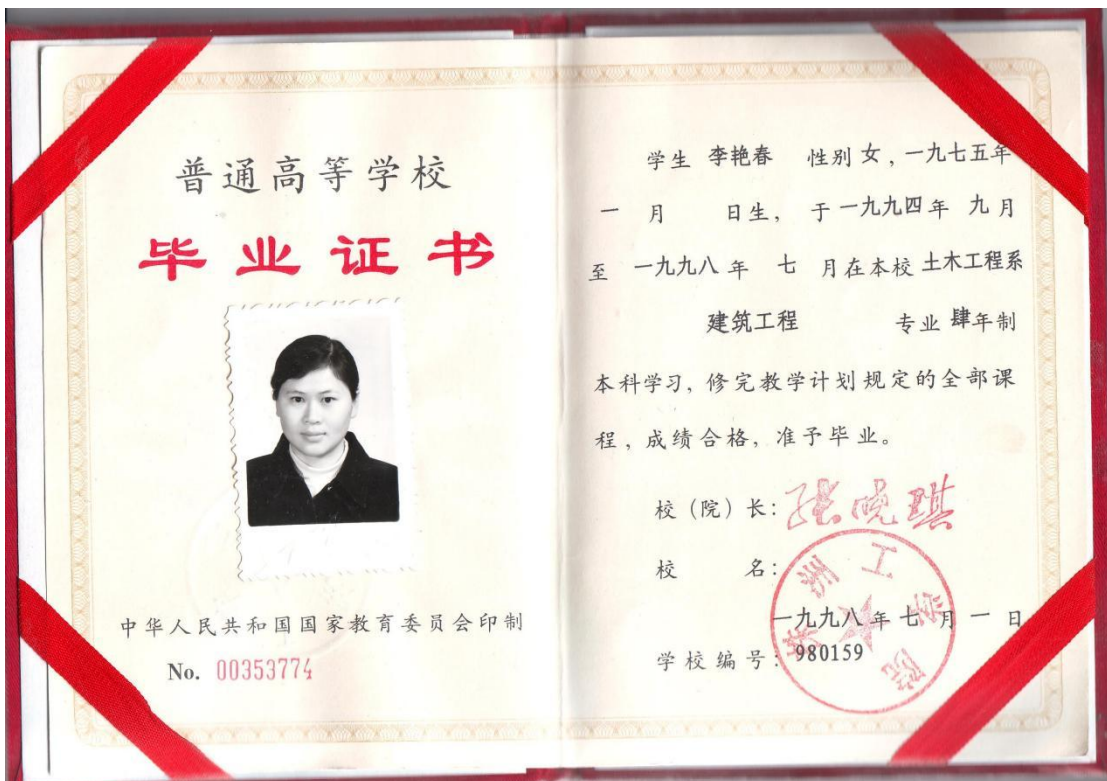 普通高等学校
毕业证书
中华人民共和国国家教育委员会印制
No. 00353774
学生 李艳春 性别 女，一九七五年
一 月 日生，于 一九九四 年 九 月
至 一九九八 年 七 月在本校 土木工程系
建筑工程 专业 肆年制
本科学习，修完教学计划规定的全部课
程，成绩合格，准予毕业。
校（院）长：张晓琪
校 名：
工学院
一九九八年 七 月 一 日
学校编号：980159